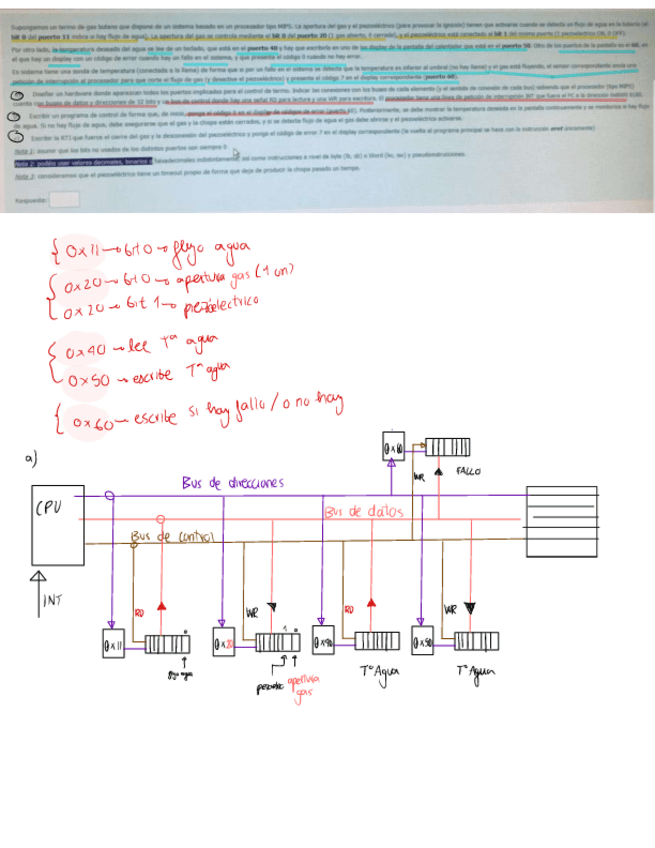 Supongamos un termo de gas butano que dispone de un sistema basado en un procesador tipo MIPS. La apertura del gas y el piezoeléctrico (para provocar la ignición) tienen que activarse cuando se detecta un flujo de agua en la tubería (el
bit 0 del puerto 11 indica si hay flujo de agua). La apertura del gas se controla mediante el bit 0 del puerto 20 (1 gas abierto, 0 cerrado), y el piezoeléctrico está conectado al bit 1 del mismo puerto (1 piezoeléctrico ON, 0 OFF).
Por otro lado, la temperatura deseada del agua se lee de un teclado, que está en el puerto 40 y hay que escribirla en uno de los display de la pantalla del calentador que está en el puerto 50. Otro de los puertos de la pantalla es el 60, en
el que hay un display con un código de error cuando hay un fallo en el sistema, y que presenta el código 0 cuando no hay error.
El sistema tiene una sonda de temperatura (conectada a la llama) de forma que si por un fallo en el sistema se detecta que la temperatura es inferior al umbral (no hay llama) y el gas está fluyendo, el sensor correspondiente envía una
petición de interrupción al procesador para que corte el flujo de gas (y desactive el piezoeléctrico) y presente el código 7 en el display correspondiente (puerto 60).
Diseñar un hardware donde aparezcan todos los puertos implicados para el control de termo. Indicar las conexiones con los buses de cada elemento (y el sentido de conexión de cada bus) sabiendo que el procesador (tipo MIPS)
cuenta con buses de datos y direcciones de 32 bits y un bus de control donde hay una señal RD para lectura y una WR para escritura. El procesador tiene una línea de petición de interrupción INT que fuerza el PC a la dirección
Escribir un programa de control de forma que, de inicio, ponga el código 0 en el display de códigos de error (puerto 60). Posteriormente, se debe mostrar la temperatura deseada en la pantalla continuamente y se monitoriza si hay flujo
de agua. Si no hay flujo de agua, debe asegurarse que el gas y la chispa están cerrados, y si se detecta flujo de agua el gas debe abrirse y el piezoeléctrico activarse.
Escribir la RTI que fuerce el cierre del gas y la desconexión del piezoeléctrico y ponga el código de error 7 en el display correspondiente (la vuelta al programa principal se hace con la instrucción eret únicamente)
Nota 1: asumir que los bits no usados de los distintos puertos son siempre 0
Nota 2: podéis usar valores decimales, binarios o hexadecimales indistintamente, así como instrucciones a nivel de byte (lb, sb) o Word (lw, sw) y pseudoinstrucciones.
Nota 3: consideramos que el piezoeléctrico tiene un timeout propio de forma que deja de producir la chispa pasado un tiempo.
Respuesta:
0x11 → bit 0 → flujo agua
0x20 → bit 0 → apertura gas (1 on)
0x20 → bit 1 → piezoeléctrico
0x40 → lee Tª agua
0x50 → escribe Tª agua
0x60 → escribe si hay fallo / o no hay
a)
0x60
WR
FALLO
CPU
Bus de direcciones
Bus de datos
Bus de control
INT
RD
WR
RD
WR
0x11
0x20
1
0
0x40
0x50
flujo agua
piezoelec
apertura gas
Tº Agua
Tº Agua